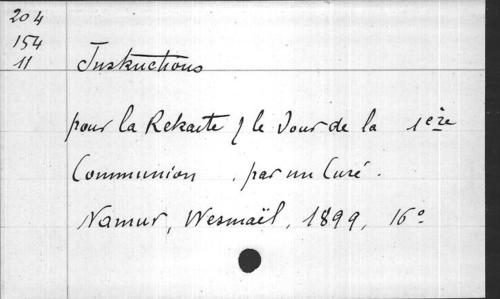 204
154
11
Instructions
pour la Retraite & le Jour de la 1ère
Communion , par un Curé .
Namur, Wesmaël, 1899, 16º